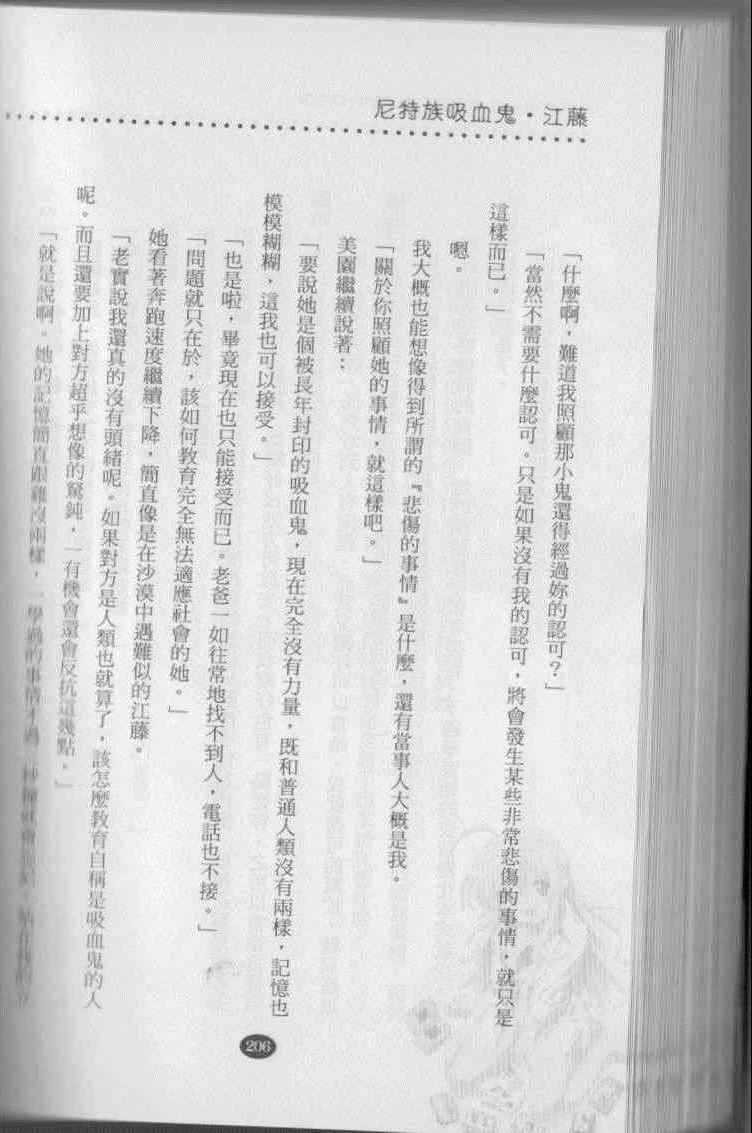 尼特族吸血鬼・江藤
「什麼啊，難道我照顧那小鬼還得經過妳的認可？」
「當然不需要什麼認可。只是如果沒有我的認可，將會發生某些非常悲傷的事情，就只是
這樣而已。」
嗯。
我大概也能想像得到所謂的『悲傷的事情』是什麼，還有當事人大概是我。
「關於你照顧她的事情，就這樣吧。」
美園繼續說著：
「要說她是個被長年封印的吸血鬼，現在完全沒有力量，既和普通人類沒有兩樣，記憶也
模模糊糊，這我也可以接受。」
「也是啦，畢竟現在也只能接受而已。老爸一如往常地找不到人，電話也不接。」
「問題就只在於，該如何教育完全無法適應社會的她。」
她看著奔跑速度繼續下降，簡直像是在沙漠中遇難似的江藤。
「老實說我還真的沒有頭緒呢。如果對方是人類也就算了，該怎麼教育自稱是吸血鬼的人
呢。而且還要加上對方超乎想像的駑鈍，一有機會還會反抗這幾點。」
「就是說啊。她的記憶簡直跟雞沒兩樣，一學過的事情才過
206